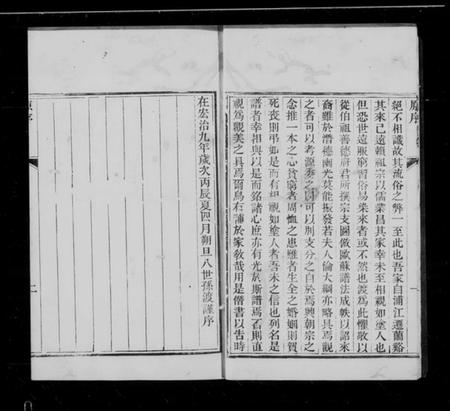 原序
絕不相識故其流俗之弊一至此也吾家自浦江遷蘭谿
其來已遠賴祖宗以儒業昌其家幸未至相視如塗人也
但恐世遠服窮習俗易染來者或不然也渡為此懼敬以
從伯祖善德府君所撰宗支圖倣歐蘇譜法成帙以詔來
裔雖於潛德幽光莫能振發若夫人倫大綱亦略具焉觀
之者可以考源委之因可以別支分之自於焉興朝宗之
念推一本之心貧窮者周恤之患難者生全之婚姻則賀
死喪則弔如是而有相視如塗人者吾未之信也列名是
譜者幸相與以是而銘諸心庶亦有光於斯譜焉否則直
視為觀美之具焉爾烏有補於家教哉用是僭書以告時
在宏治九年歲次丙辰夏四月朔旦八世孫渡謹序
原序
一
二